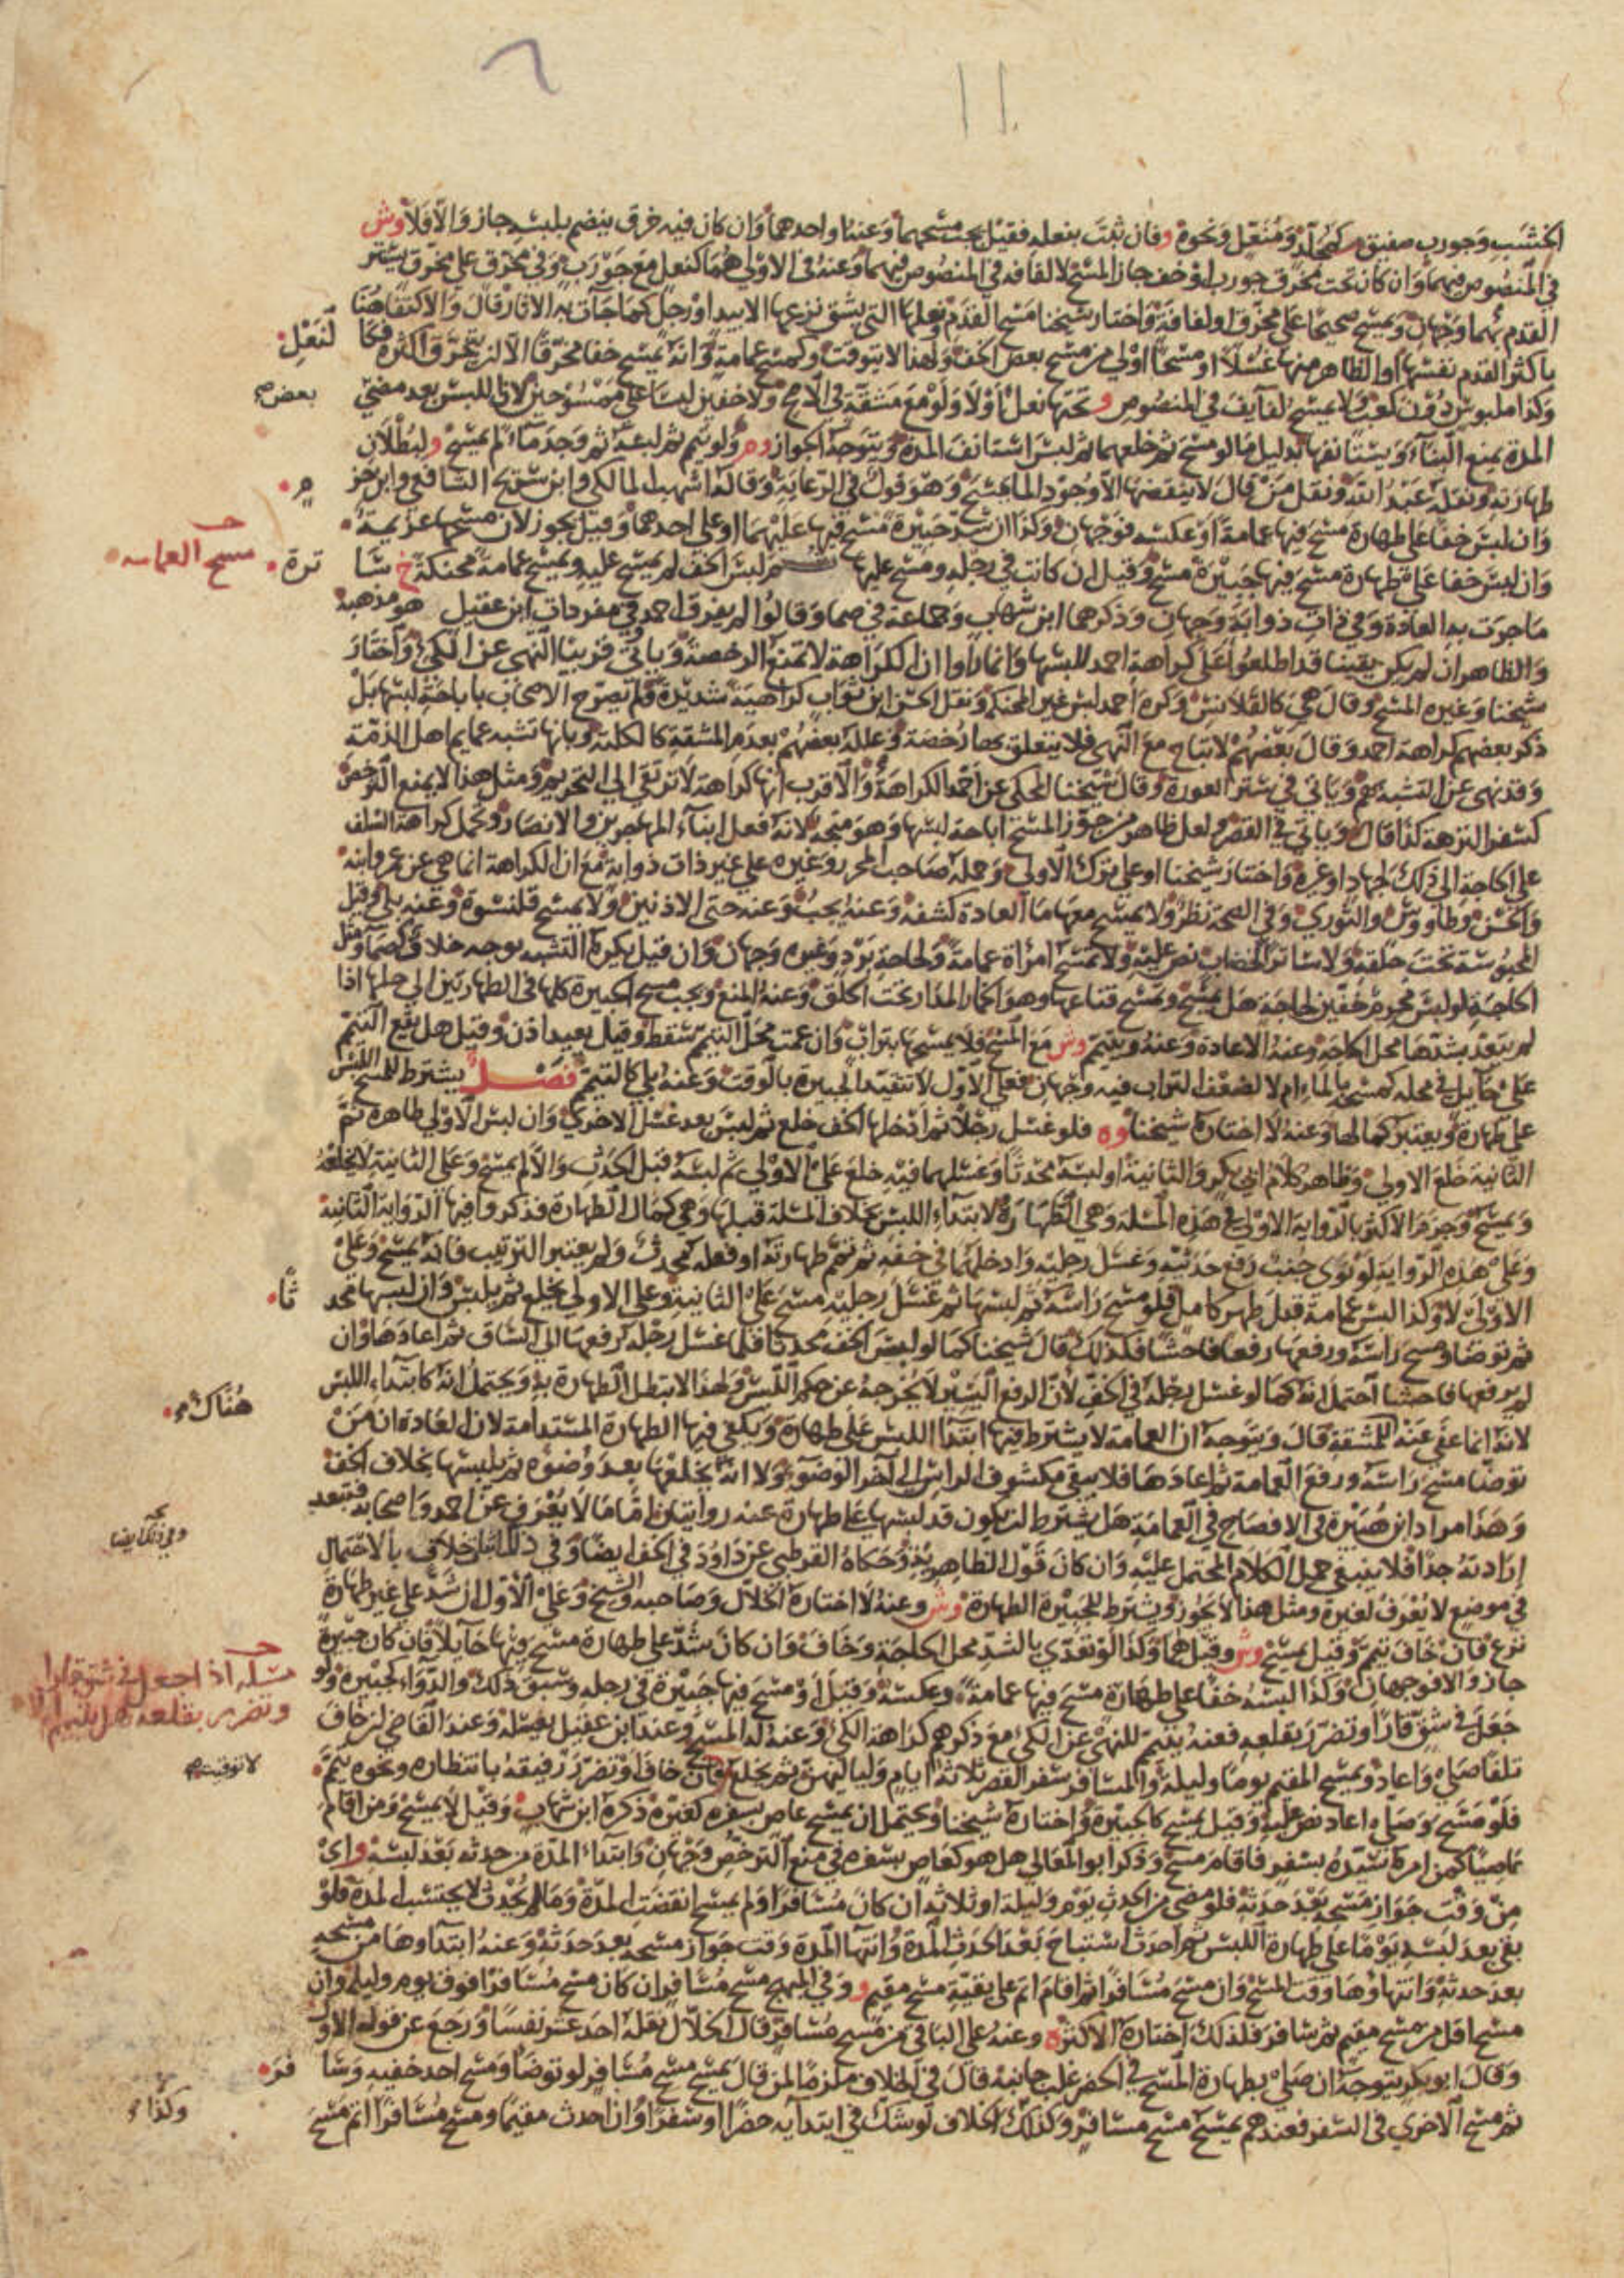 الخشب وجورب صفيق كمجلد ومنعل ونحوه وفان ثبت بنعله فقيل يجب مسحهما وعنه او احدهما وان كان فيه خرق ينضم بلبسه جاز والا فلا وش
في المنصوص فيهما وان كان تحت مخرق جورب او خف جاز المسح لا لفافة في المنصوص فيهما وعنه في الاولى هما كنعل مع جورب وفي مخرق على مخرق يستر
القدم بهما وجهان ويمسح صحيحا على مخرق او لفافة واختار شيخنا مسح القدم ونعلها التي يشق نزعها الا بيد او رجل كما جاءت به الاثار قال والاكتفاء هنا
باكثر القدم نفسها او الظاهر منها غسلا او مسحا اولى من مسح بعض الخف ولهذا لا يتوقت وكمسح عمامة وانه يمسح خفا مخرقا الا ان تخرق اكثره فكا لنعل
وكذا ملبوس دون كعب ولا يمسح لفايف في المنصوص وتحتها نعل او لا ولو مع مشقة في الاصح ولا خفين لبسا على ممسوحين لان اللبس بعد مضي بعض
المدة يمنع البناء ويستانفها بدليل ما لو مسح ثم خلعهما ثم لبس استانف المدة ويتوجه الجواز وم ولو تيمم ثم لبسه ثم وجد ماء لم يمسح ولبطلان
طهارته ونقله عبد الله ونقل من قال لا ينقضها الا وجود الماء يمسح وهو قول في الرعاية وقاله اشهب المالكي وابن سريج الشافعي وابن حزم
وان لبس خفا على طهارة مسح فيها عمامة او عكسه فوجهان وكذا ان شد جبيرة مسح فيها عليهما او على احدهما وقيل يجوز لان مسحها عزيمة
وان لبس خفا على طهارة مسح فيها جبيرة مسح وقيل ان كانت في رجله ومسح عليها ثم لبس الخف لم يمسح عليه ويمسح عمامة محنكة خ ساترة
مسح العمامة
ما جرت به العادة وفي ذات ذوابة وجهان وذكرهما ابن شهاب وجماعة في صما وقالوا لم يفرق احمد وفي مفردات ابن عقيل هو مذهبه
والظاهر ان لم يكن يقينا قد اطلعوا على كراهة احمد للبسها وانما راوا ان الكراهة لا تمنع الرخصة وياتي قريبا النهي عن الكي واختار
شيخنا وغيره المسح وقال هي كالقلانس وكره احمد لبس غير المحنكة ونقل الحسن ابن ثواب كراهية شديدة ولم يصرح الاصحاب باباحة لبسها بل
ذكر بعضهم كراهة احمد وقال بعضهم لا تباح مع النهي فلا يتعلق بها رخصة وعلله بعضهم بعدم المشقة كالكلتة وبانها تشبه عمايم اهل الذمة
وقد نهي عن التشبه بهم وياتي في ستر العورة وقال شيخنا المحكي عن احمد الكراهة والاقرب انها كراهة لا ترتقي الى التحريم ومثل هذا لا يمنع الترخص
كسفر النزهة كذا قال وياتي في القصر ولعل ظاهر من جوز المسح اباحة لبسها وهو متجه لانه فعل ابناء المهاجرين والانصار وتحمل كراهة السلف
على الحاجة الى ذلك لجهاد او غيره واختاره شيخنا او على ترك الاولى وحمله صاحب المحرر وغيره على غير ذات ذوابة مع ان الكراهة انما هي عن عمر وابنه
والحسن وطاووس والثوري وفي الصحة نظر ولا يمسح معها ما العادة كشفه وعنه يجب وعنه حتى الاذنين ولا يمسح قلنسوة وعنه بلى وقيل
المحبوسة تحت حلقه ولا ساتر الخضاب نص عليه ولا تمسح امراة عمامة ولحاجة برد وغيره وجهان وان قيل يكره التشبه توجه خلاف كصما ومثل
الحاجة لو لبس محرم خفين لحاجة هل يمسح وتمسح قناعها وهو الخمار المدار تحت الحلق وعنه المنع ويجب مسح الجبيرة كلها في الطهارتين الى حلها اذا
لم يتعد بشدها محل الحاجة وعنه الاعادة وعنه ويتيمم وش مع المسح فلا يمسحها بتراب وان عمت محل التيمم سقط وقيل يعيد اذن وقيل هل يقع التيمم
على حايل في محله كمسحه بالماء ام لا لضعف التراب فيه وجهان فعلى الاول لا تتقيد الجبيرة بالوقت وعنه بلى كالتيمم فصل يشترط للمسح اللبس
على طهارة ويعتبر كمالها وعنه لا اختاره شيخنا وه فلو غسل رجلا ثم ادخلها الخف خلع ثم لبس بعد غسل الاخرى وان لبس الاولى طاهرة ثم
الثانية خلع الاولى وظاهر كلام ابي بكر والثانية او لبسه محدثا وغسلهما فيه خلع على الاولى ثم لبسه قبل الحدث والا لم يمسح وعلى الثانية لا يخلعه
ويمسح وجزم الاكثر بالرواية الاولى في هذه المسلة وهي الطهارة لابتداء اللبس بخلاف المسلة قبلها وهي كمال الطهارة فذكروا فيها الرواية الثانية
وعلى هذه الرواية لو نوى جنب رفع حدثيه وغسل رجليه وادخلهما في خفه ثم تمم طهارته او فعله محدث ولم يعتبر الترتيب فانه يمسح وعلى
الاولى لا وكذا لبس عمامة قبل طهر كامل فلو مسح راسه ثم لبسها ثم غسل رجليه مسح على الثانية وعلى الاولى يخلع ثم يلبس وان لبسها محدثا
ثم توضا ومسح راسه ورفعها رفعا فاحشا فكذلك قال شيخنا كما لو لبس الخف محدثا فلما غسل رجله رفعها الى الساق ثم اعادها وان
لم يرفعها فاحشا احتمل انه كما لو غسل رجله في الخف لان الرفع اليسير لا يخرجه عن حكم اللبس ولهذا لا تبطل الطهارة به ويحتمل انه كابتداء اللبس هناك
لانه انما عفي عنه للمشقة قال ويتوجه ان العمامة لا يشترط فيها ابتدا اللبس على طهارة ويكفي فيها الطهارة المستدامة لان العادة ان من
توضا مسح راسه ورفع العمامة ثم اعادها فلا يبقى مكشوف الراس الى اخر الوضوء ولا انه يخلعها بعد وضوئه ثم يلبسها بخلاف الخف
وهذا مراد ابن هبيرة في الافصاح في العمامة هل يشترط ان يكون قد لبسها على طهارة عنه روايتان اما ما لا يعرف عن احمد واصحابه فتبعد
وفي ذلك ايضا
ارادته جدا فلا ينبغي حمل الكلام المحتمل عليه وان كان قول الظاهرية وحكاه القرطبي عن داود في الخف ايضا وفي ذلك خلاف بالاحتمال
في موضع لا يعرف لغيره ومثل هذا لا يجوز ويشترط للجبيرة الطهارة وش وعنه لا اختاره الخلال وصاحبه والشيخ وعلى الاول ان شد على غير طهارة
نزع فان خاف تيمم وقيل يمسح وش وقيل هما وكذا لو تعدى بالشد محل الحاجة وخاف وان كان شد على طهارة مسح فيها حايلا فان كان جبيرة
جاز والا فوجهان وكذا لبسه خفا على طهارة مسح فيها عمامة وعكسه وقيل او مسح فيها جبيرة في رجله وسبق ذلك والدواء كجبيرة ولو
مسلة اذا جعل في شق قارا
وتضرر بقلعه هل يتيمم ام لا
جعل في شق قارا وتضرر بقلعه فعنه يتيمم للنهي عن الكي مع ذكرهم كراهة الكي وعنه له المسح وعند ابن عقيل يغسله وعند القاضي ان خاف
تلفا صلى واعاد ويمسح المقيم يوما وليلة والمسافر سفر القصر ثلاثة ايام ولياليهن ثم يخلع فان خاف او تضرر رفيقه بانتظاره ونحوه تيمم
لا توقيت
فلو مسح وصلى اعاد نص عليه وقيل يمسح كالجبيرة واختاره شيخنا ويحتمل ان يمسح عاص بسفره كغيره ذكره ابن شهاب وقيل لا يمسح ومن اقام
عاصيا كمن امره سيده بسفر فاقام مسح وذكر ابو المعالي هل هو كعاص بسفره في منع الترخص وجهان وابتداء المدة من حدثه بعد لبسه واي
من وقت جواز مسحه بعد حدثه فلو مضى من الحدث يوم وليلة او ثلاثة ان كان مسافرا ولم يمسح انقضت المدة وما لم يحدث لا يحتسب المدة فلو
بقي بعد لبسه يوما على طهارة اللبس ثم احدث استباح بعد الحدث المدة وانتها المدة وقت جواز مسحه بعد حدثه وعنه ابتداوها من مسحه
بعد حدثه وانتهاوها وقت المسح وان مسح مسافرا ثم اقام اتم على بقية مسح مقيم و وفي المبهج مسح مسافر ان كان مسح مسافرا فوق يوم وليلة وان
مسح اقل من مسح مقيم ثم سافر فلذلك اختاره الاكثر ه وعنه على الباقي من مسح مسافر قال الخلال نقله احد عشر نفسا ورجع عن قوله الاول
وقال ابو بكر يتوجه ان صلى بطهارة المسح في الحضر غلب جانبه قال في الخلاف ملزما لمن قال يمسح مسح مسافر لو توضا ومسح احد خفيه وسافر
ثم مسح الاخرى في السفر فعندهم يمسح مسح مسافر وكذلك الخلاف لو شك في ابتدايه حضرا او سفرا وان احدث مقيما ومسح مسافرا اتم مسح
وكذا